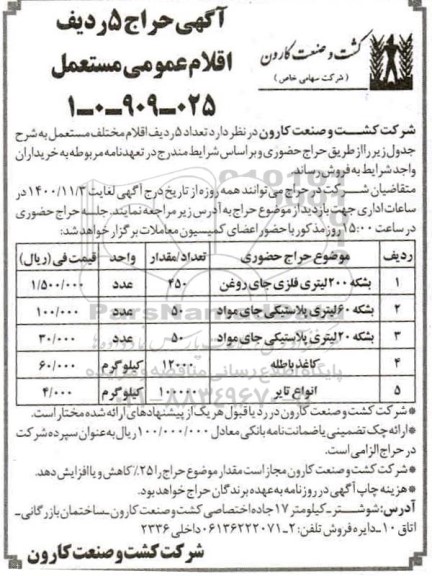 آگهی حراج ۵ ردیف
اقلام عمومی مستعمل
۱-۰-۹۰۹-۰۲۵
کشت و صنعت کارون
(شرکت سهامی خاص)
شرکت کشت و صنعت کارون در نظر دارد تعداد ۵ ردیف اقلام مختلف مستعمل به شرح
جدول زیر را از طریق حراج حضوری و بر اساس شرایط مندرج در تعهدنامه مربوطه به خریداران
واجد شرایط به فروش رساند.
متقاضیان شرکت در حراج می توانند همه روزه از تاریخ درج آگهی لغایت ۱۴۰۰/۱۱/۳ در
ساعات اداری جهت بازدید از موضوع حراج به آدرس زیر مراجعه نمایند. جلسه حراج حضوری
در ساعت ۱۵:۰۰ روز مذکور با حضور اعضای کمیسیون معاملات برگزار خواهد شد:
ردیف موضوع حراج حضوری تعداد/مقدار واحد قیمت فی (ریال)
۱ بشکه ۲۰۰ لیتری فلزی جای روغن ۴۵۰ عدد ۱/۵۰۰/۰۰۰
۲ بشکه ۶۰ لیتری پلاستیکی جای مواد ۵۰ عدد ۱۰۰/۰۰۰
۳ بشکه ۲۰ لیتری پلاستیکی جای مواد ۵۰ عدد ۳۰/۰۰۰
۴ کاغذ باطله ۱۲۰۰۰ کیلوگرم ۶۰/۰۰۰
۵ انواع تایر ۱۰۰۰۰۰ کیلوگرم ۴/۰۰۰
* شرکت کشت و صنعت کارون در رد یا قبول هر یک از پیشنهادهای ارائه شده مختار است.
* ارائه چک تضمینی یا ضمانت نامه بانکی معادل ۱۰۰/۰۰۰/۰۰۰ ریال به عنوان سپرده شرکت
در حراج الزامی است.
* شرکت کشت و صنعت کارون مجاز است مقدار موضوع حراج را ۲۵٪ کاهش و یا افزایش دهد.
* هزینه چاپ آگهی در روزنامه به عهده برندگان حراج خواهد بود.
آدرس: شوشتر-کیلومتر ۱۷ جاده اختصاصی کشت و صنعت کارون-ساختمان بازرگانی-
اتاق ۱۰-دایره فروش تلفن: ۲-۰۶۱۳۶۲۲۲۰۷۱ داخلی ۲۳۳۶
شرکت کشت و صنعت کارون